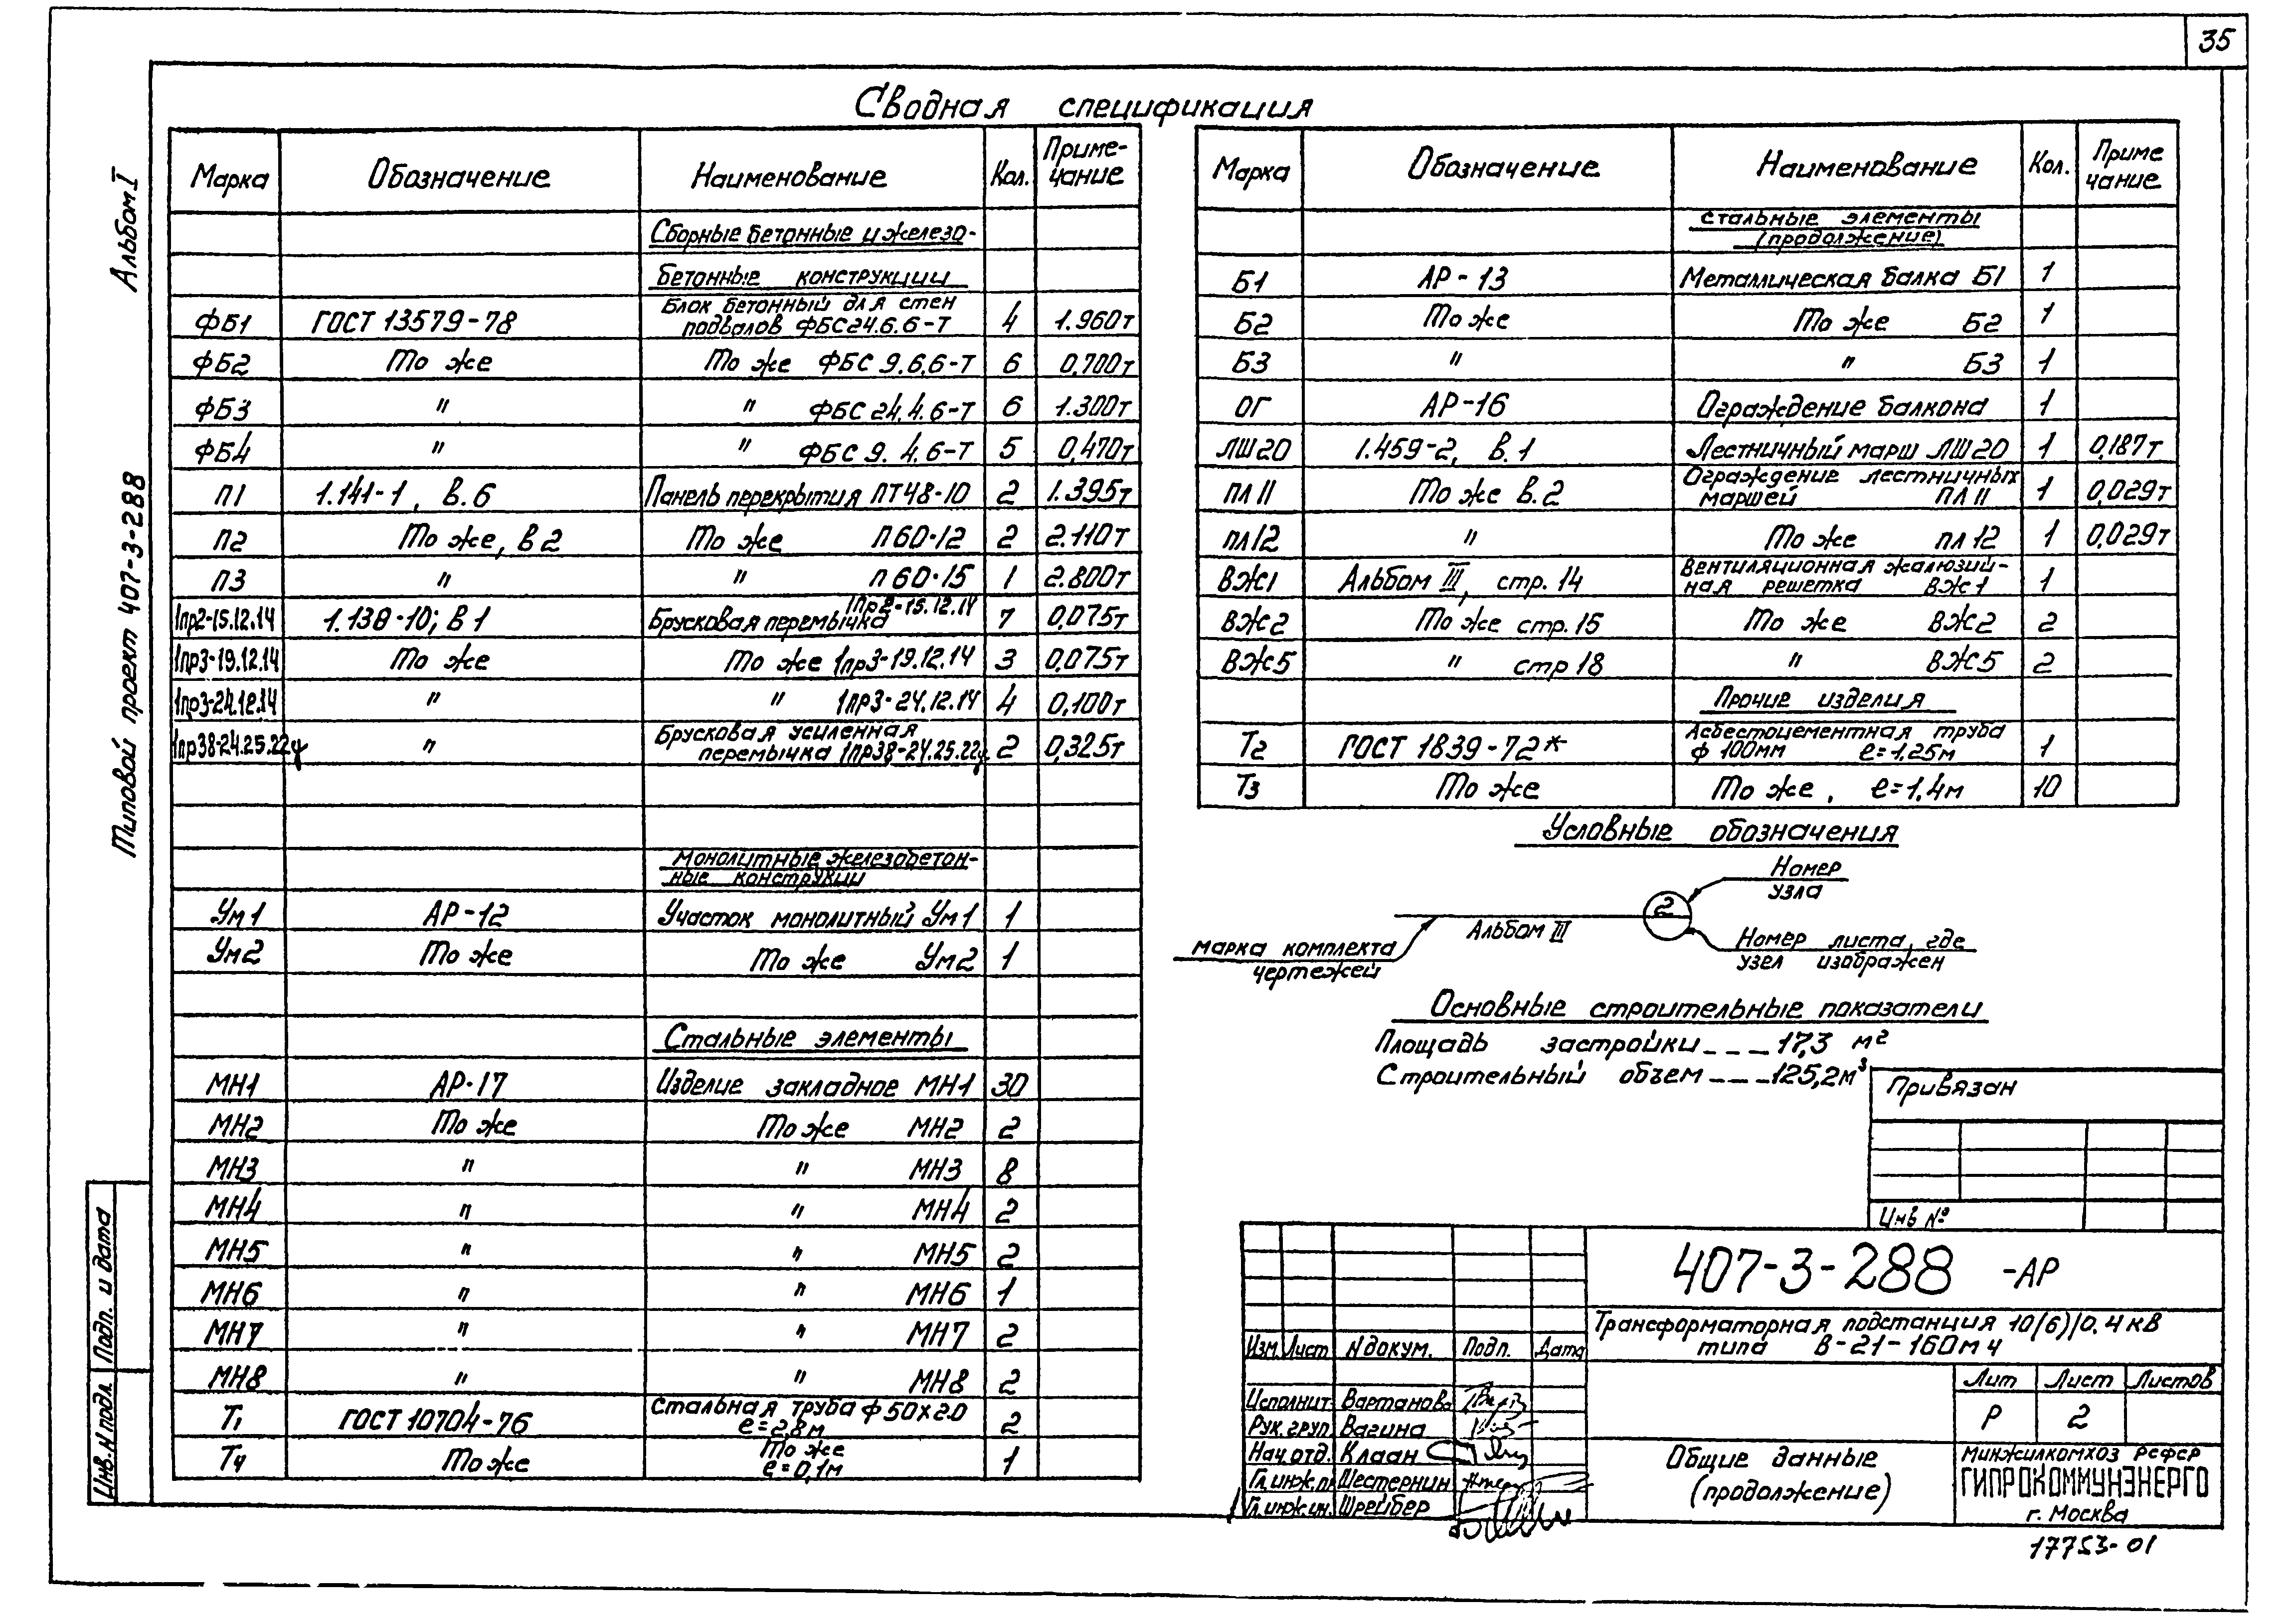 35
Сводная спецификация
Альбом I
Типовой проект 407-3-288
Подп. и дата
Инв. N подл.
Марка Обозначение Наименование Кол. Приме-
чание
Сборные бетонные и железо-
бетонные конструкции
ФБ1 ГОСТ 13579-78 Блок бетонный для стен
подвалов ФБС24.6.6-Т 4 1.960т
ФБ2 То же То же ФБС 9.6.6-Т 6 0,700т
ФБ3 " " ФБС 24.4.6-Т 6 1.300т
ФБ4 " " ФБС 9.4.6-Т 5 0,470т
П1 1.141-1, в.6 Панель перекрытия ПТ48-10 2 1.395т
П2 То же, в2 То же П60-12 2 2.110т
П3 " " П60-15 1 2.800т
1пр2-15.12.14 1.138-10; в1 Брусковая перемычка 1пр2-15.12.14 7 0,075т
1пр3-19.12.14 То же То же 1пр3-19.12.14 3 0,075т
1пр3-24.12.14 " " 1пр3-24.12.14 4 0,100т
1пр38-24.25.22у " Брусковая усиленная
перемычка 1пр38-24.25.22у 2 0,325т
Монолитные железобетон-
ные конструкии
Ум1 АР-12 Участок монолитный Ум1 1
Ум2 То же То же Ум2 1
Стальные элементы
МН1 АР-17 Изделие закладное МН1 30
МН2 То же То же МН2 2
МН3 " " МН3 8
МН4 " " МН4 2
МН5 " " МН5 2
МН6 " " МН6 1
МН7 " " МН7 2
МН8 " " МН8 2
Т1 ГОСТ 10704-76 Стальная труба ф50х2.0
ℓ=2,8м 2
Т4 То же То же
ℓ=0,1м 1
Марка Обозначение Наименование Кол. Приме
чание
Стальные элементы
(продолжение)
Б1 АР-13 Металлическая балка Б1 1
Б2 То же То же Б2 1
Б3 " " Б3 1
ОГ АР-16 Ограждение балкона 1
ЛШ20 1.459-2, в.1 Лестничный марш ЛШ20 1 0,187т
пл11 То же в.2 Ограждение лестничных
маршей ПЛ11 1 0,029т
пл12 " То же пл12 1 0,029т
ВЖ1 Альбом III, стр. 14 Вентиляционная жалюзий-
ная решетка ВЖ1 1
ВЖ2 То же стр.15 То же ВЖ2 2
ВЖ5 " стр 18 " ВЖ5 2
Прочие изделия
Т2 ГОСТ 1839-72* Асбестоцементная труба
ф 100мм ℓ=1,25м 1
Т3 То же То же, ℓ=1,4м 10
Условные обозначения
Номер
узла
2
Альбом III
Марка комплекта
чертежей
Номер листа, где
узел изображен
Основные строительные показатели
Площадь застройки _ _ _ 17,3 м²
Строительный объем _ _ _ 125,2м³
Привязан
Инв №
407-3-288 -АР
Трансформаторная подстанция 10(6)/0,4кв
типа В-21-160м4
Изм. Лист N докум. Подп. Дата
Исполнит. Вартанова
Рук. груп. Вагина
Нач. отд. Клаан
Гл. инж. пр. Шестернин
Гл. инж. ин. Шрейбер
Лит Лист Листов
Р 2
Общие данные
(продолжение)
Минжилкомхоз РСФСР
ГИПРОКОММУНЭНЕРГО
г. Москва
17753-01